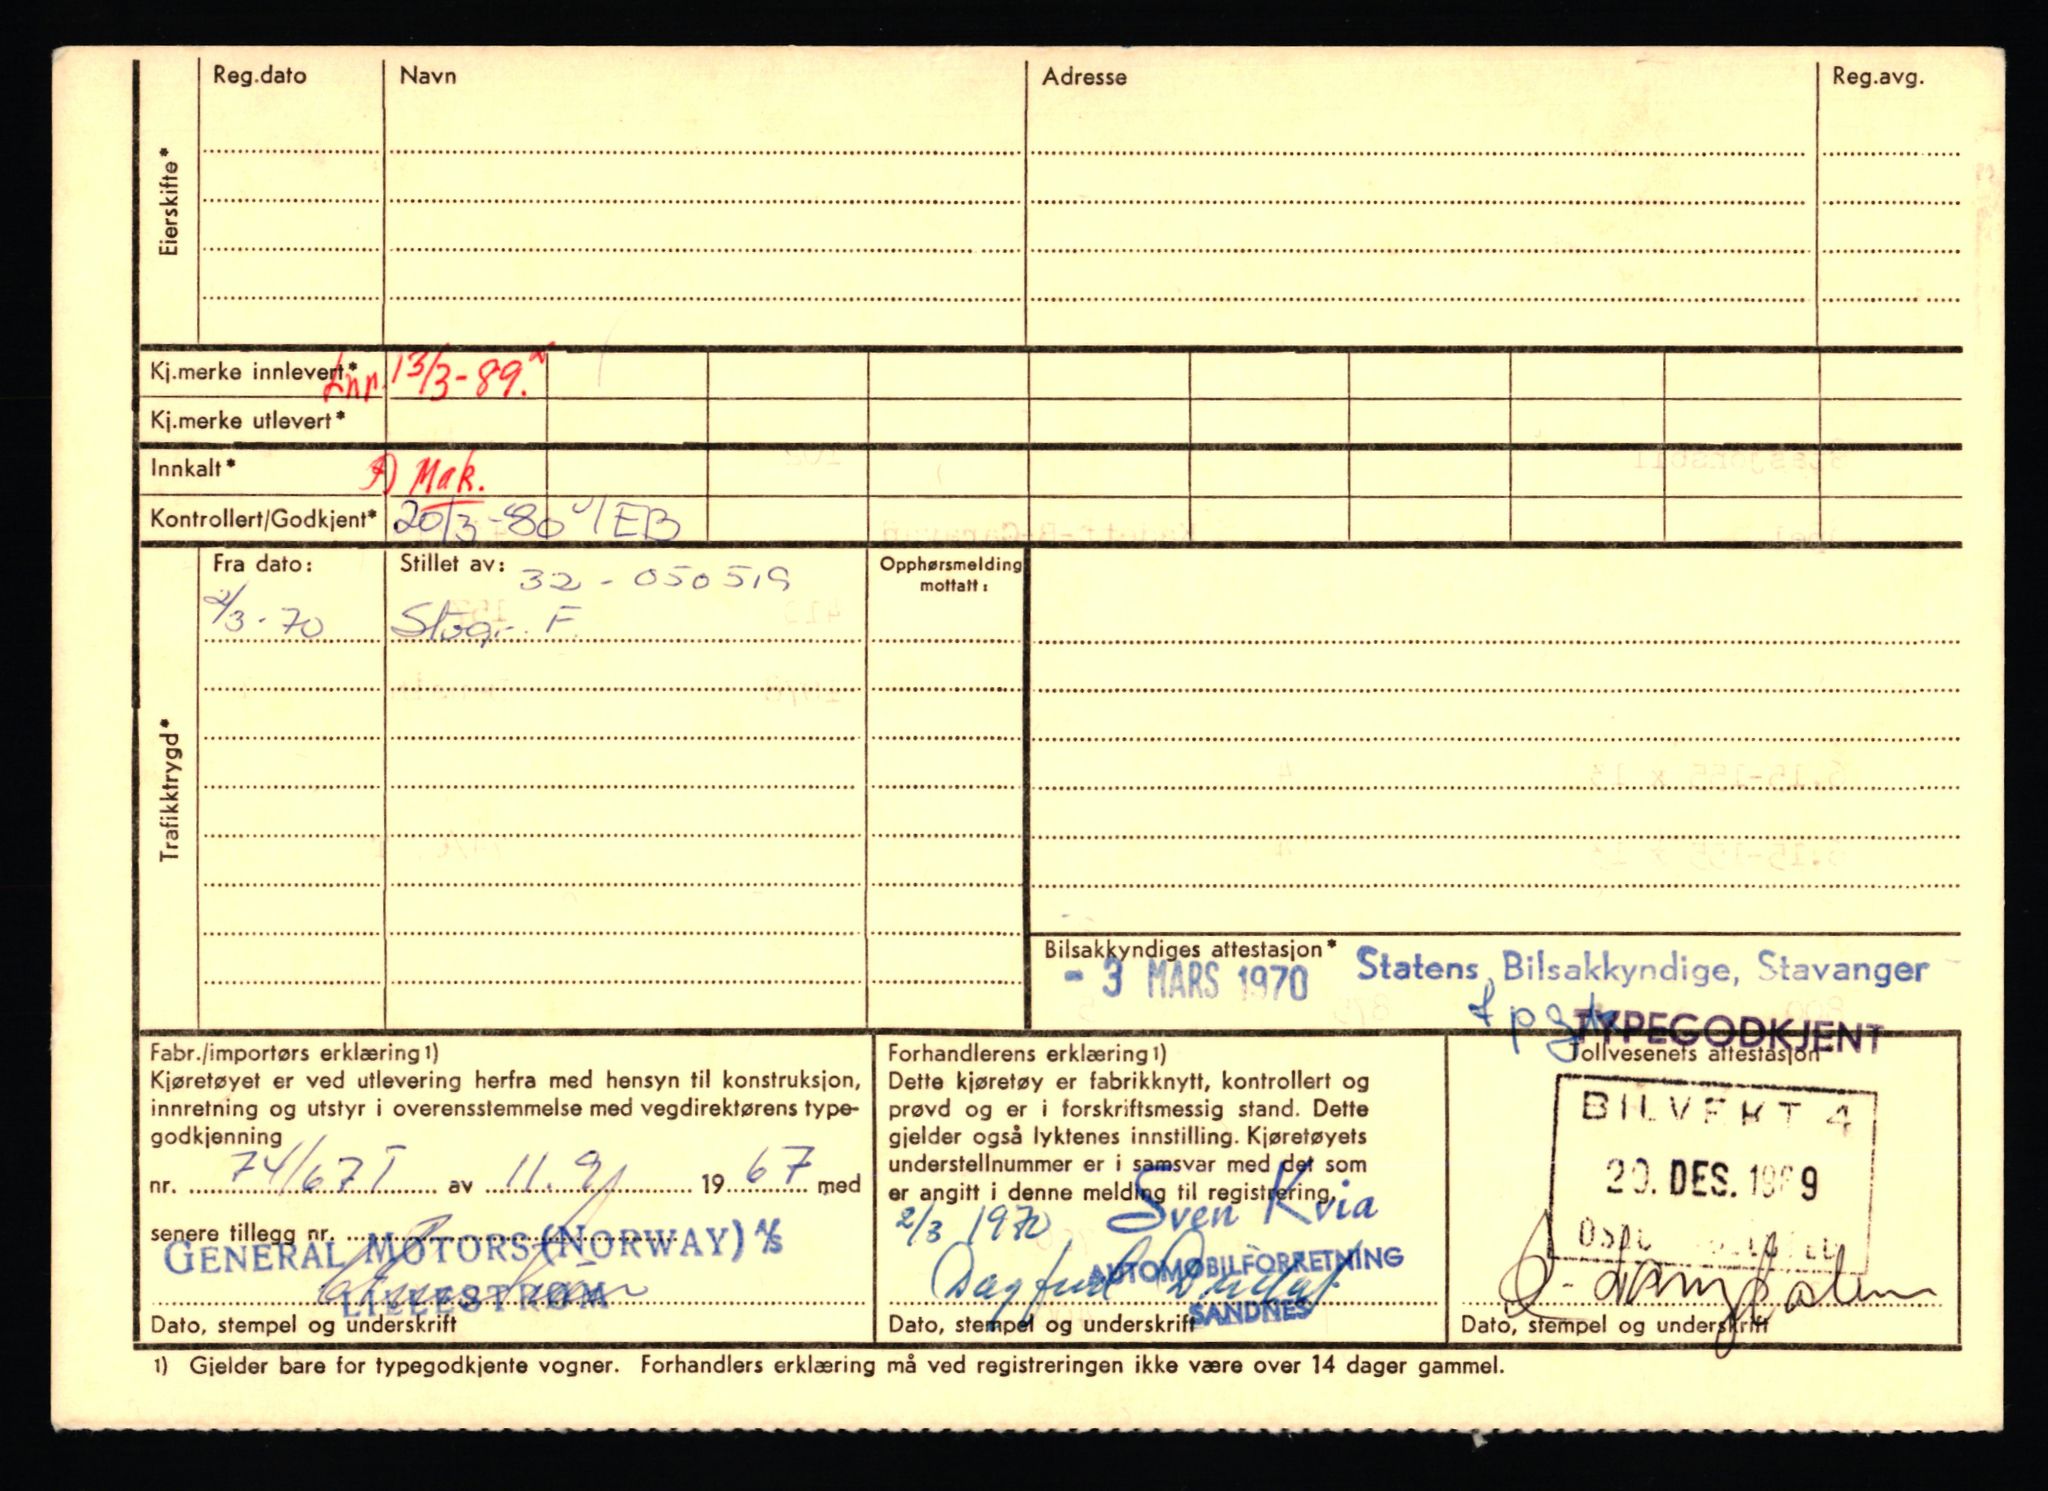 Reg.dato Navn Adresse Reg.avg.
Eierskifte*
Kj.merke innlevert* 13/3-89.
Kj.merke utlevert*
Innkalt* Mak.
Kontrollert/Godkjent* 20/3-80 EB
Trafikktrygd*
Fra dato: Stillet av: 32-050519 Opphørsmelding mottatt:
2/3-70 F.
Bilsakkyndiges attestasjon*
- 3 MARS 1970 Statens Bilsakkyndige, Stavanger
TYPEGODKJENT
Fabr./importørs erklæring1)
Kjøretøyet er ved utlevering herfra med hensyn til konstruksjon,
innretning og utstyr i overensstemmelse med vegdirektørens type-
godkjenning
nr. 74/67T av 11.9 1967 med
senere tillegg nr.
GENERAL MOTORS (NORWAY) A/S
LILLESTRØM
Dato, stempel og underskrift
Forhandlerens erklæring1)
Dette kjøretøy er fabrikknytt, kontrollert og
prøvd og er i forskriftsmessig stand. Dette
gjelder også lyktenes innstilling. Kjøretøyets
understellnummer er i samsvar med det som
er angitt i denne melding til registrering.
2/3 1970 Sven Kvia
AUTOMOBILFORRETNING
SANDNES
Dato, stempel og underskrift
Tollvesenets attestasjon
BILVEKT 4
20. DES. 1969
Dato, stempel og underskrift
1) Gjelder bare for typegodkjente vogner. Forhandlers erklæring må ved registreringen ikke være over 14 dager gammel.